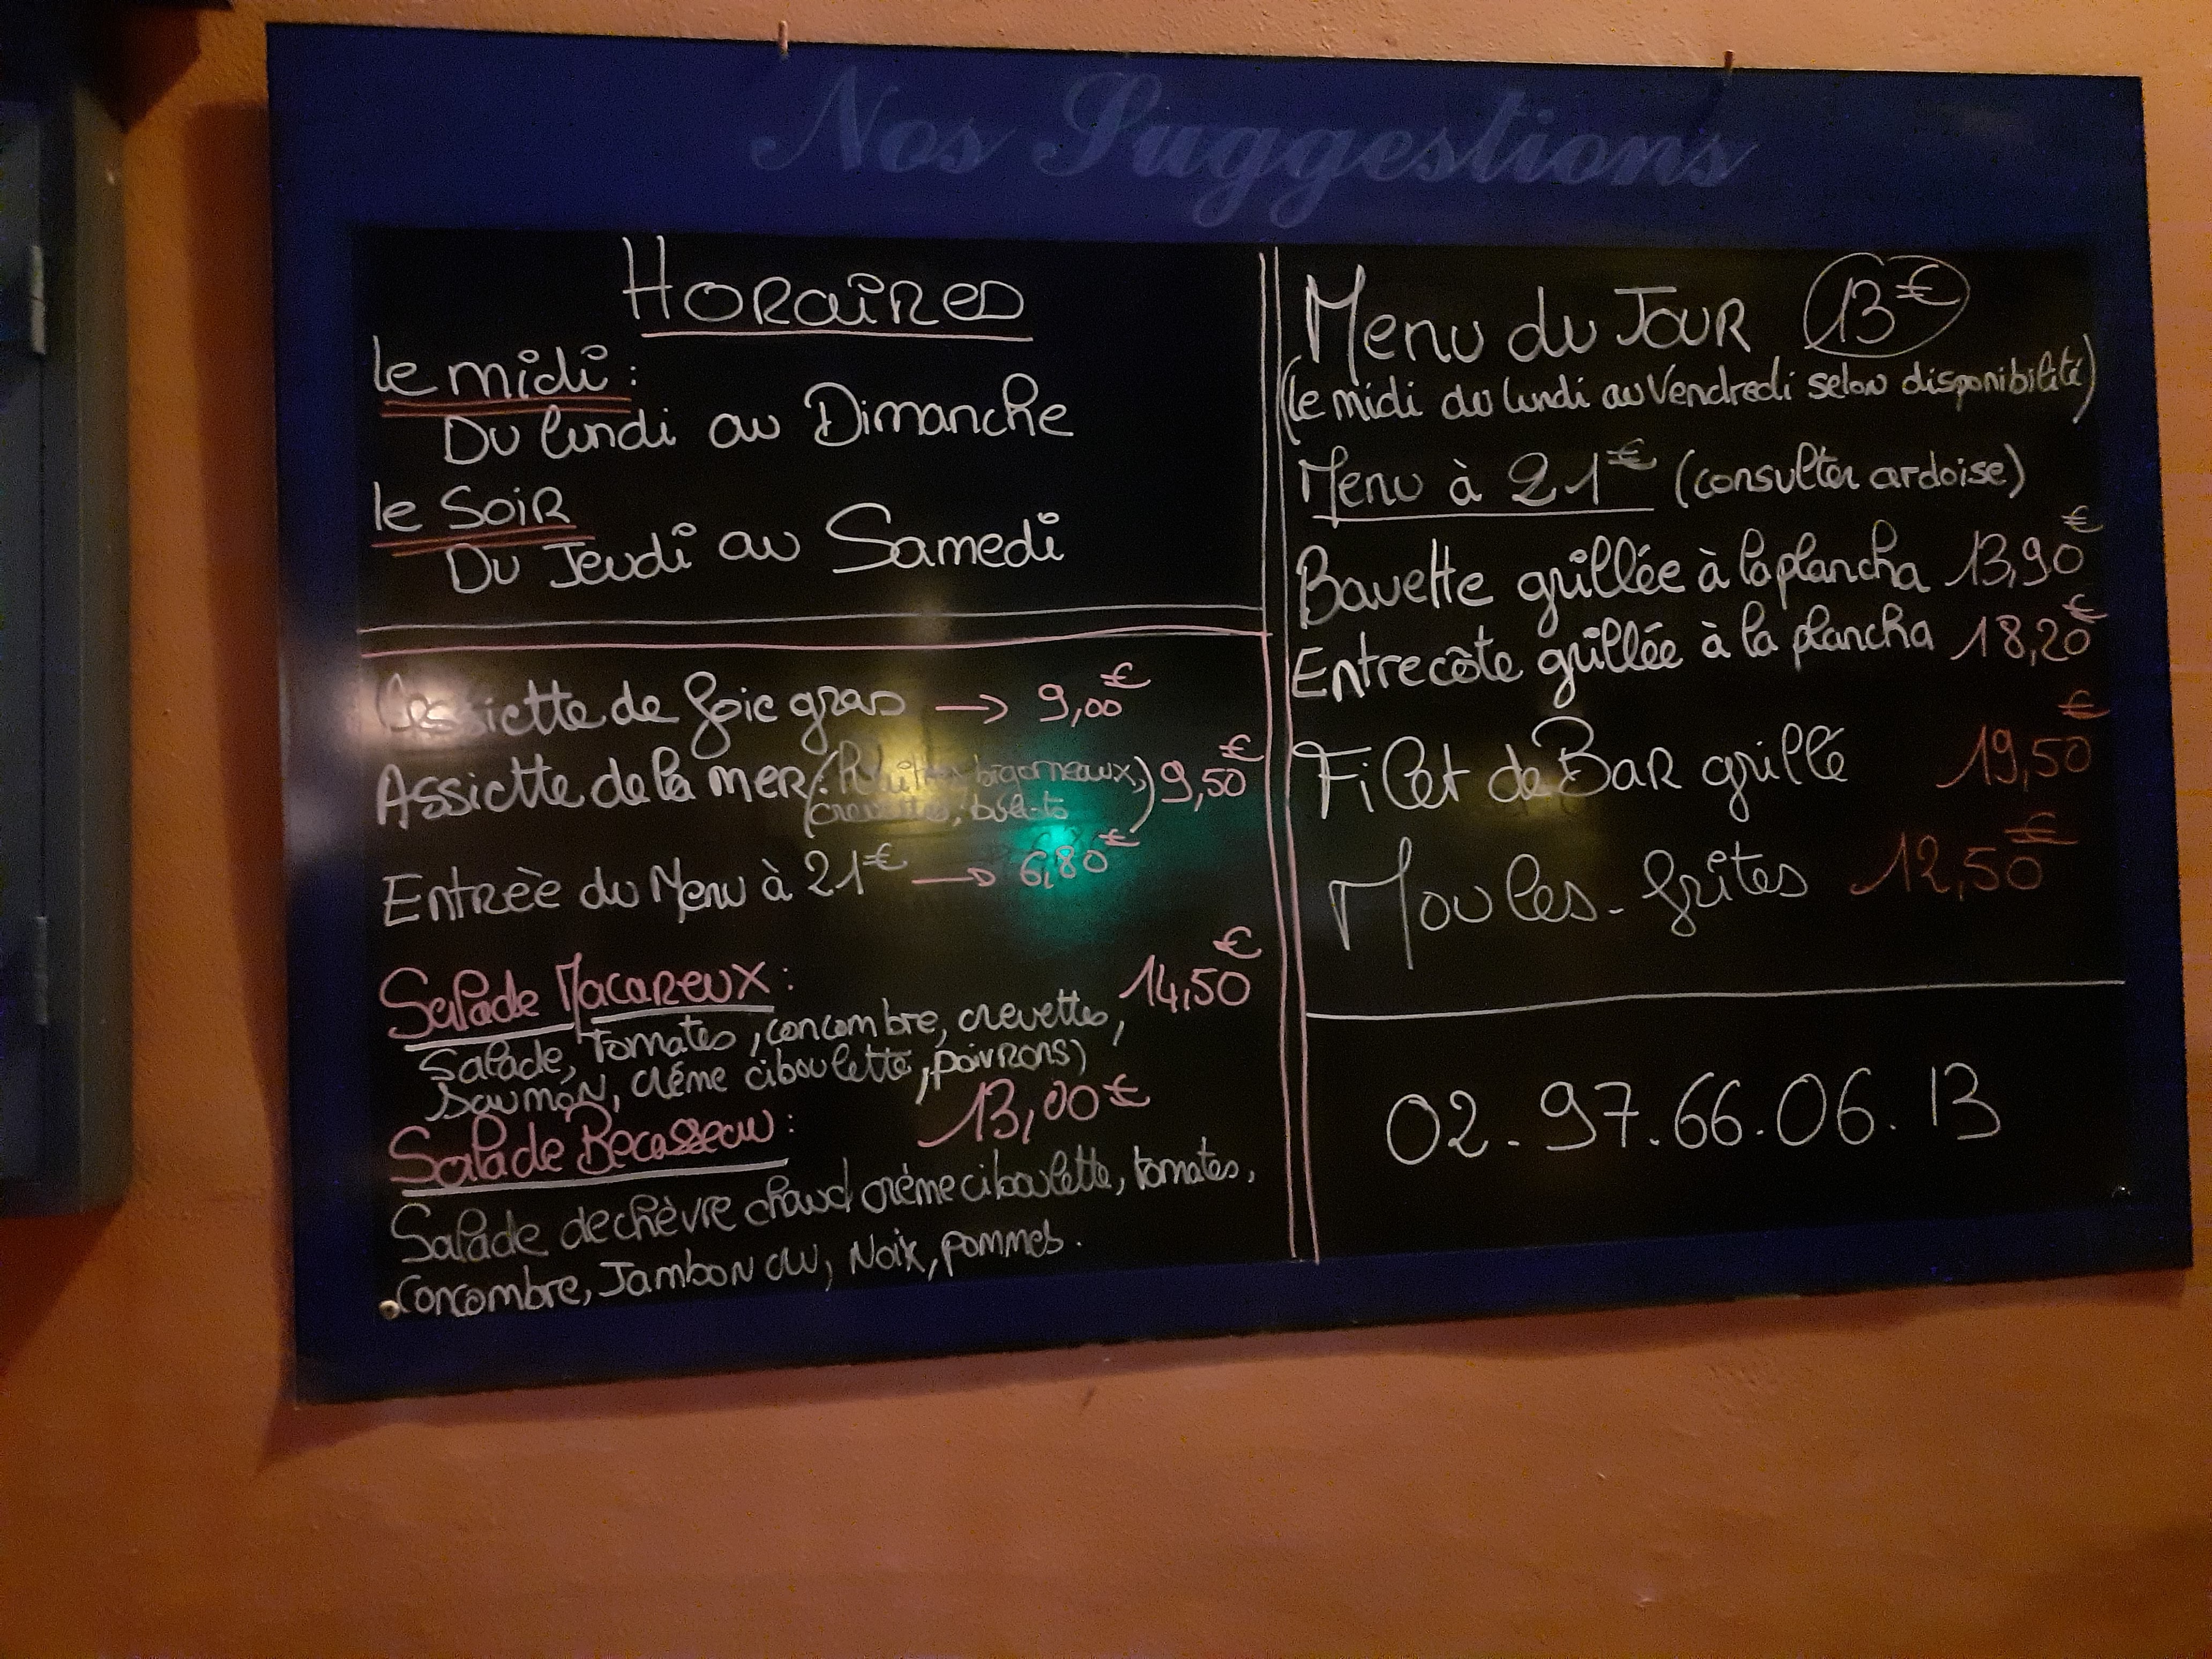 Nos Suggestions
Horaires
le midi :
Du lundi au Dimanche
le Soir
Du Jeudi au Samedi
Assiette de foie gras → 9,00€
Assiette de la mer (: Huîtres, bigorneaux, crevettes, bulots) 9,50€
Entrée du Menu à 21€ → 6,80€
Salade Macareux : 14,50€
Salade, Tomates, concombre, crevettes,
Saumon, crème ciboulette, poivrons)
Salade Becasseau : 13,00€
Salade de chèvre chaud crème ciboulette, tomates,
Concombre, Jambon cru, Noix, pommes.
Menu du Jour 13€
(le midi du lundi au Vendredi selon disponibilité)
Menu à 21€ (consulter ardoise)
Bavette grillée à la plancha 13,90€
Entrecôte grillée à la plancha 18,20€
Filet de Bar grillé 19,50€
Moules-frîtes 12,50€
02-97.66.06.13